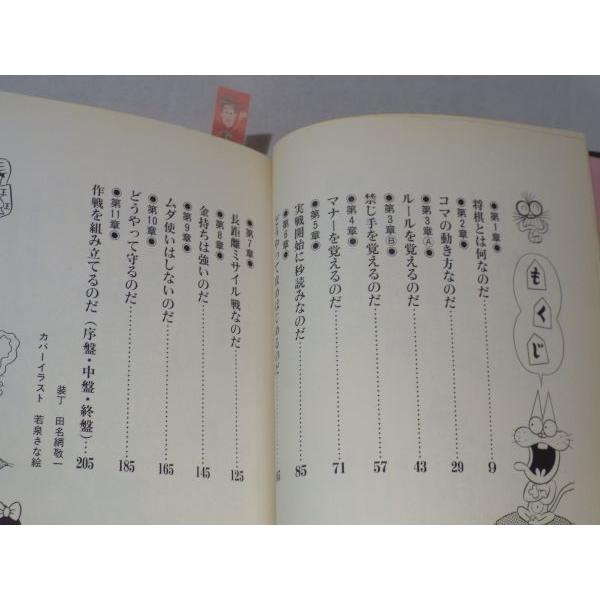 もくじ
●第1章●
将棋とは何なのだ……9
●第2章●
コマの動き方なのだ……29
●第3章Ⓐ●
ルールを覚えるのだ……43
●第3章Ⓑ●
禁じ手を覚えるのだ……57
●第4章●
マナーを覚えるのだ……71
●第5章●
実戦開始に秒読みなのだ……85
●第6章●
●第7章●
長距離ミサイル戦なのだ……125
●第8章●
金持ちは強いのだ……145
●第9章●
ムダ使いはしないのだ……165
●第10章●
どうやって守るのだ……185
●第11章●
作戦を組み立てるのだ(序盤・中盤・終盤)…205
装丁 田名網敬一
カバーイラスト 若泉さな絵